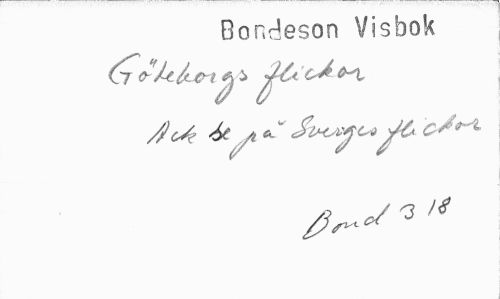 Bondeson Visbok
Göteborgs flickor
Ack se på Sveriges flickor
Bond 318